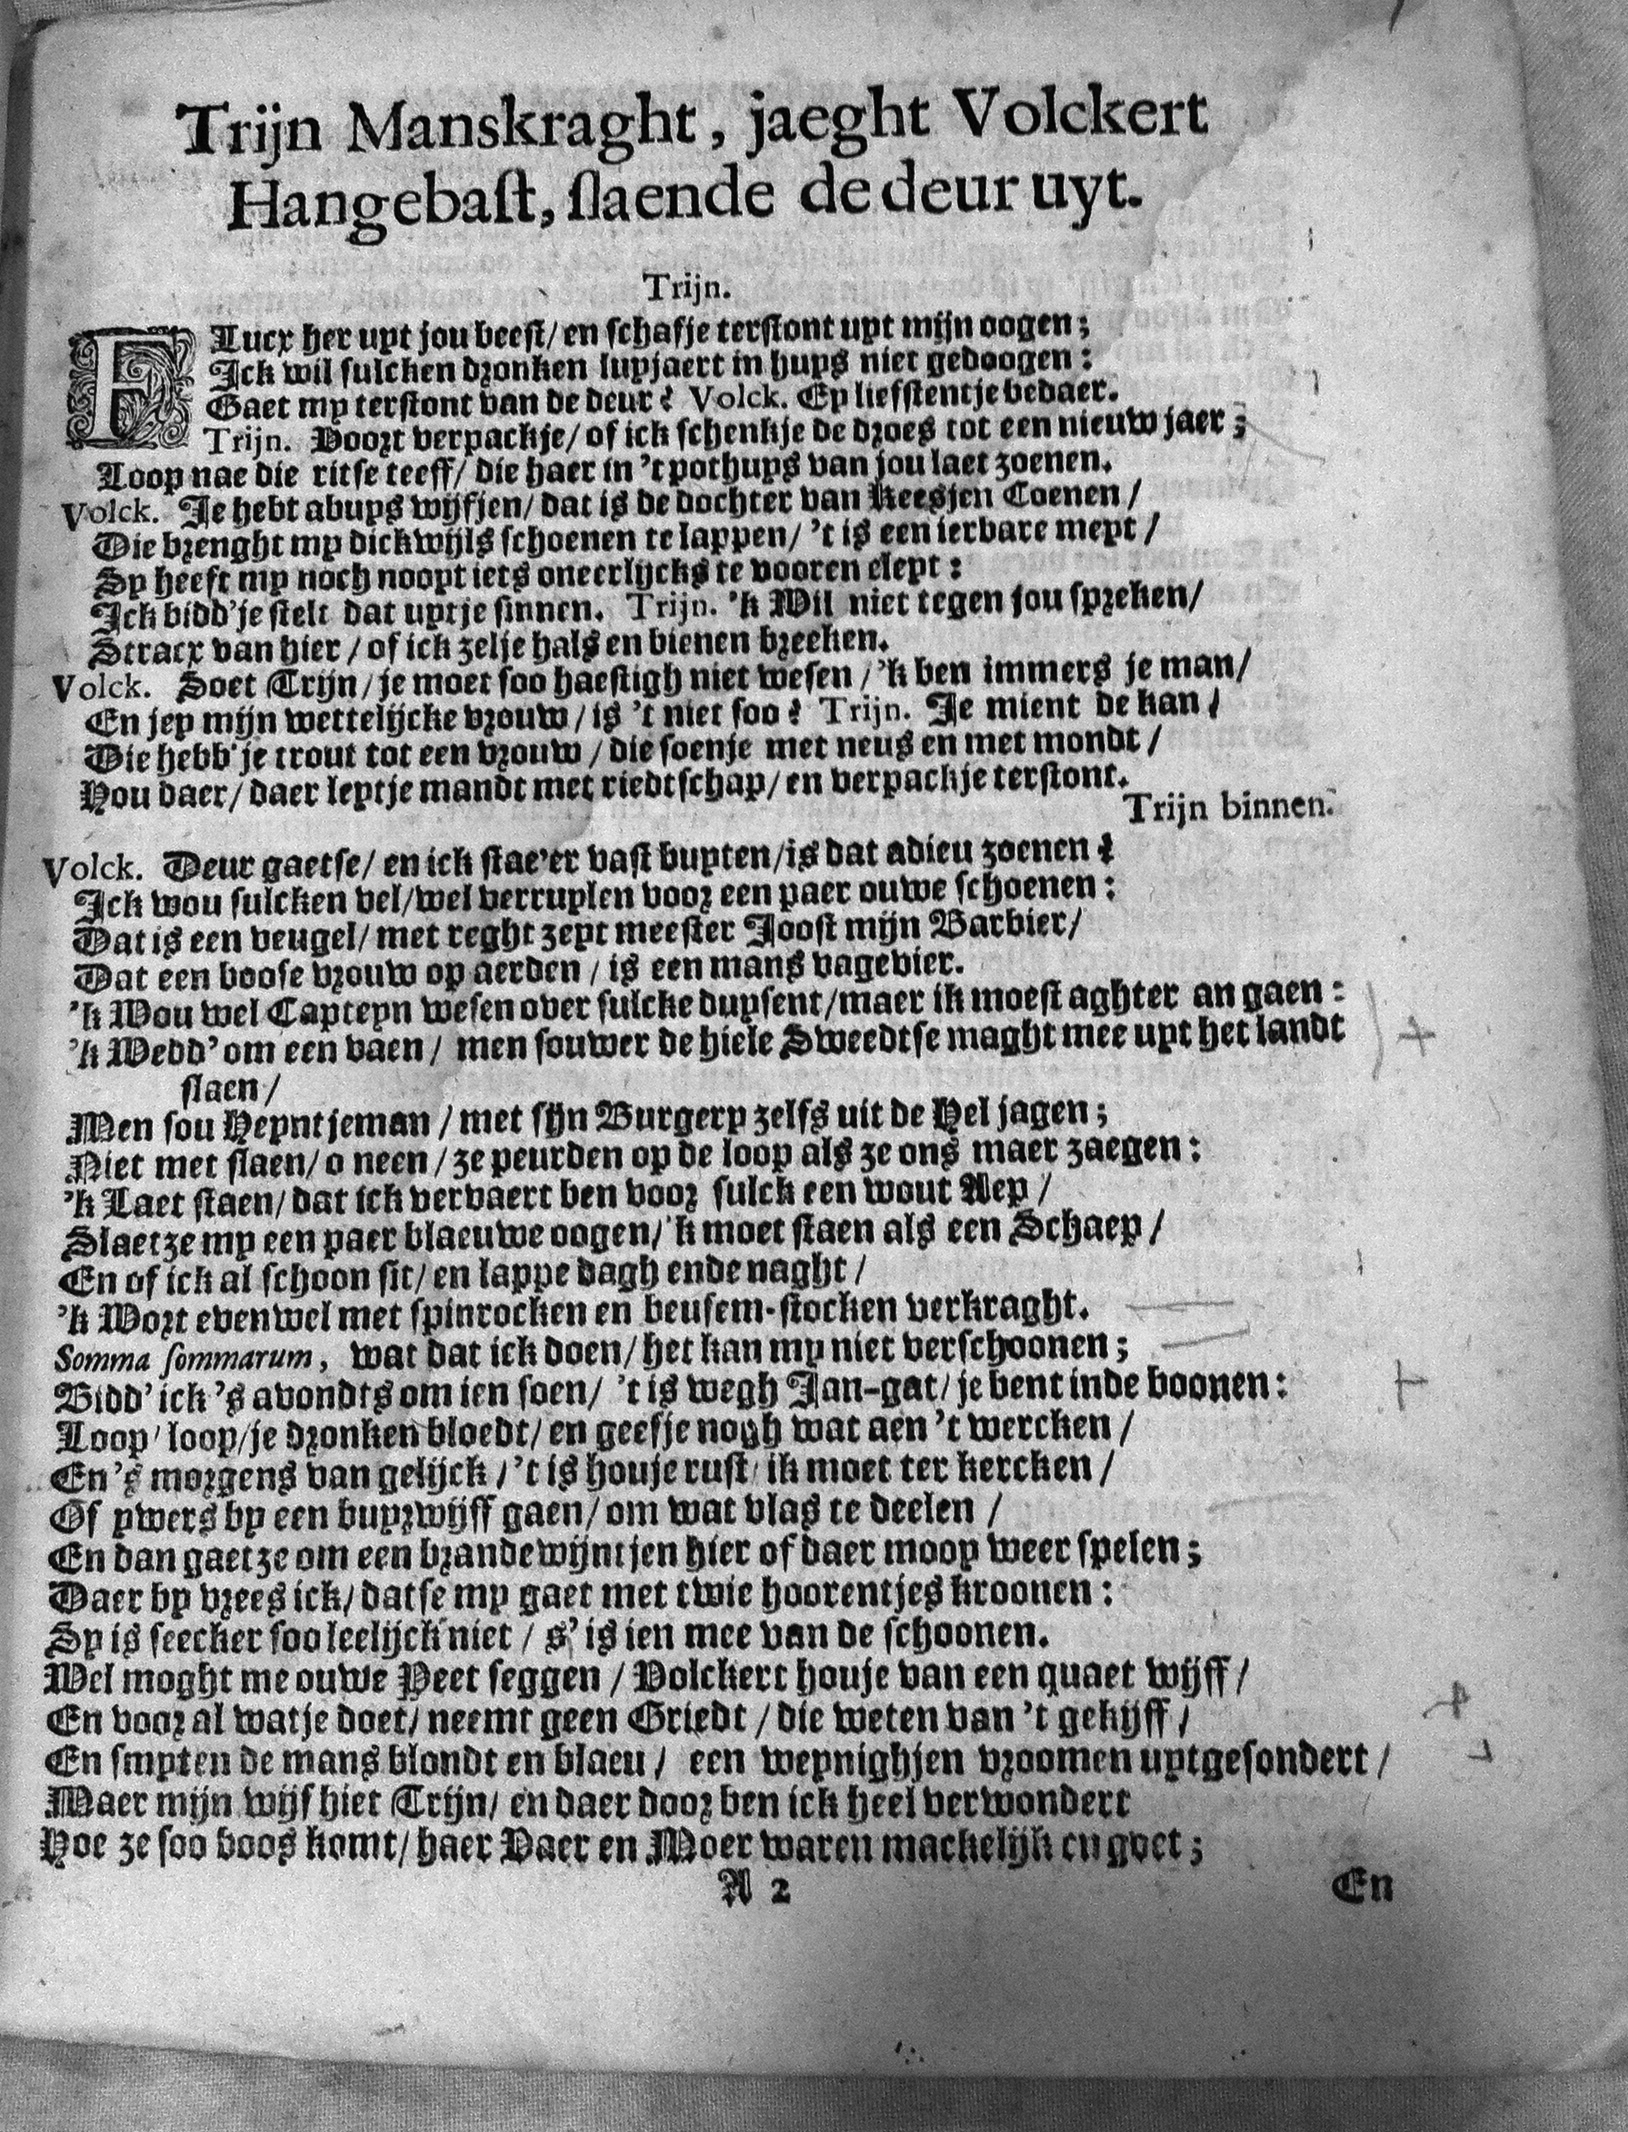 Trijn Manskraght, jaeght Volckert
Hangebast, slaende de deur uyt.
Trijn.
FLucx her uyt jou beest/ en schafje terstont uyt mijn oogen;
Ick wil sulcken dronken luyjaert in huys niet gedoogen:
Gaet my terstont van de deur? Volck. Ey liefstentje bedaer.
Trijn. Voort verpackje/ of ick schenkje de droes tot een nieuw jaer;
Loop nae die ritse teeff/ die haer in 't pothuys van jou laet zoenen.
Volck. Je hebt abuys wijfjen/ dat is de dochter van Keesjen Coenen/
Die brenght my dickwijls schoenen te lappen/ 't is een ierbare meyt/
Sy heeft my noch nooyt iets oneerlijcks te vooren eleyt:
Ick bidd' je stelt dat uytje sinnen. Trijn. 'k Wil niet tegen jou spreken/
Stracx van hier/ of ick zelje hals en bienen breeken.
Volck. Soet Trijn/ je moet soo haestigh niet wesen/ 'k ben immers je man/
En jey mijn wettelijcke vrouw/ is 't niet soo? Trijn. Je mient de kan/
Die hebb' je trout tot een vrouw/ die soenje met neus en met mondt/
Hou daer/ daer leytje mandt met riedtschap/ en verpackje terstont.
Trijn binnen.
Volck. Deur gaetse/ en ick stae'er vast buyten/ is dat adieu zoenen?
Ick wou sulcken vel/ wel verruylen voor een paer ouwe schoenen:
Dat is een veugel/ met reght zeyt meester Joost mijn Barbier/
Dat een boose vrouw op aerden/ is een mans vagevier.
'k Wou wel Capteyn wesen over sulcke duysent/ maer ik moest aghter an gaen:
'k Wedd' om een vaen/ men souwer de hiele Sweedtse maght mee uyt het landt
slaen/
Men sou Heyntjeman/ met sijn Burgery zelfs uit de Hel jagen;
Niet met slaen/ o neen/ ze peurden op de loop als ze ons maer zaegen:
'k Laet staen/ dat ick vervaert ben voor sulck een wout Aep/
Slaetze my een paer blaeuwe oogen/ 'k moet staen als een Schaep/
En of ick al schoon sit/ en lappe dagh ende naght/
'k Wort evenwel met spinrocken en beusem-stocken verkraght.
Somma sommarum, wat dat ick doen/ het kan my niet verschoonen;
Bidd' ick 's avondts om ien soen/ 't is wegh Jan-gat/ je bent inde boonen:
Loop/ loop/ je dronken bloedt/ en geefje nogh wat aen 't wercken/
En 's morgens van gelijck/ 't is houje rust/ ik moet ter kercken/
Of ywers by een buyrwijff gaen/ om wat vlas te deelen/
En dan gaetze om een brandewijntjen hier of daer mooy weer spelen;
Daer by vrees ick/ datse my gaet met twie hoorentjes kroonen:
Sy is seecker soo leelijck niet/ s' is ien mee van de schoonen.
Wel moght me ouwe Peet seggen/ Volckert houje van een quaet wijff/
En voor al watje doet/ neemt geen Griedt/ die weten van 't gekijff/
En smyten de mans blondt en blaeu/ een weynighjen vroomen uytgesondert/
Maer mijn wijf hiet Trijn/ en daer door ben ick heel verwondert
Hoe ze soo boos komt/ haer Vaer en Moer waren mackelijk en goet;
A 2
En